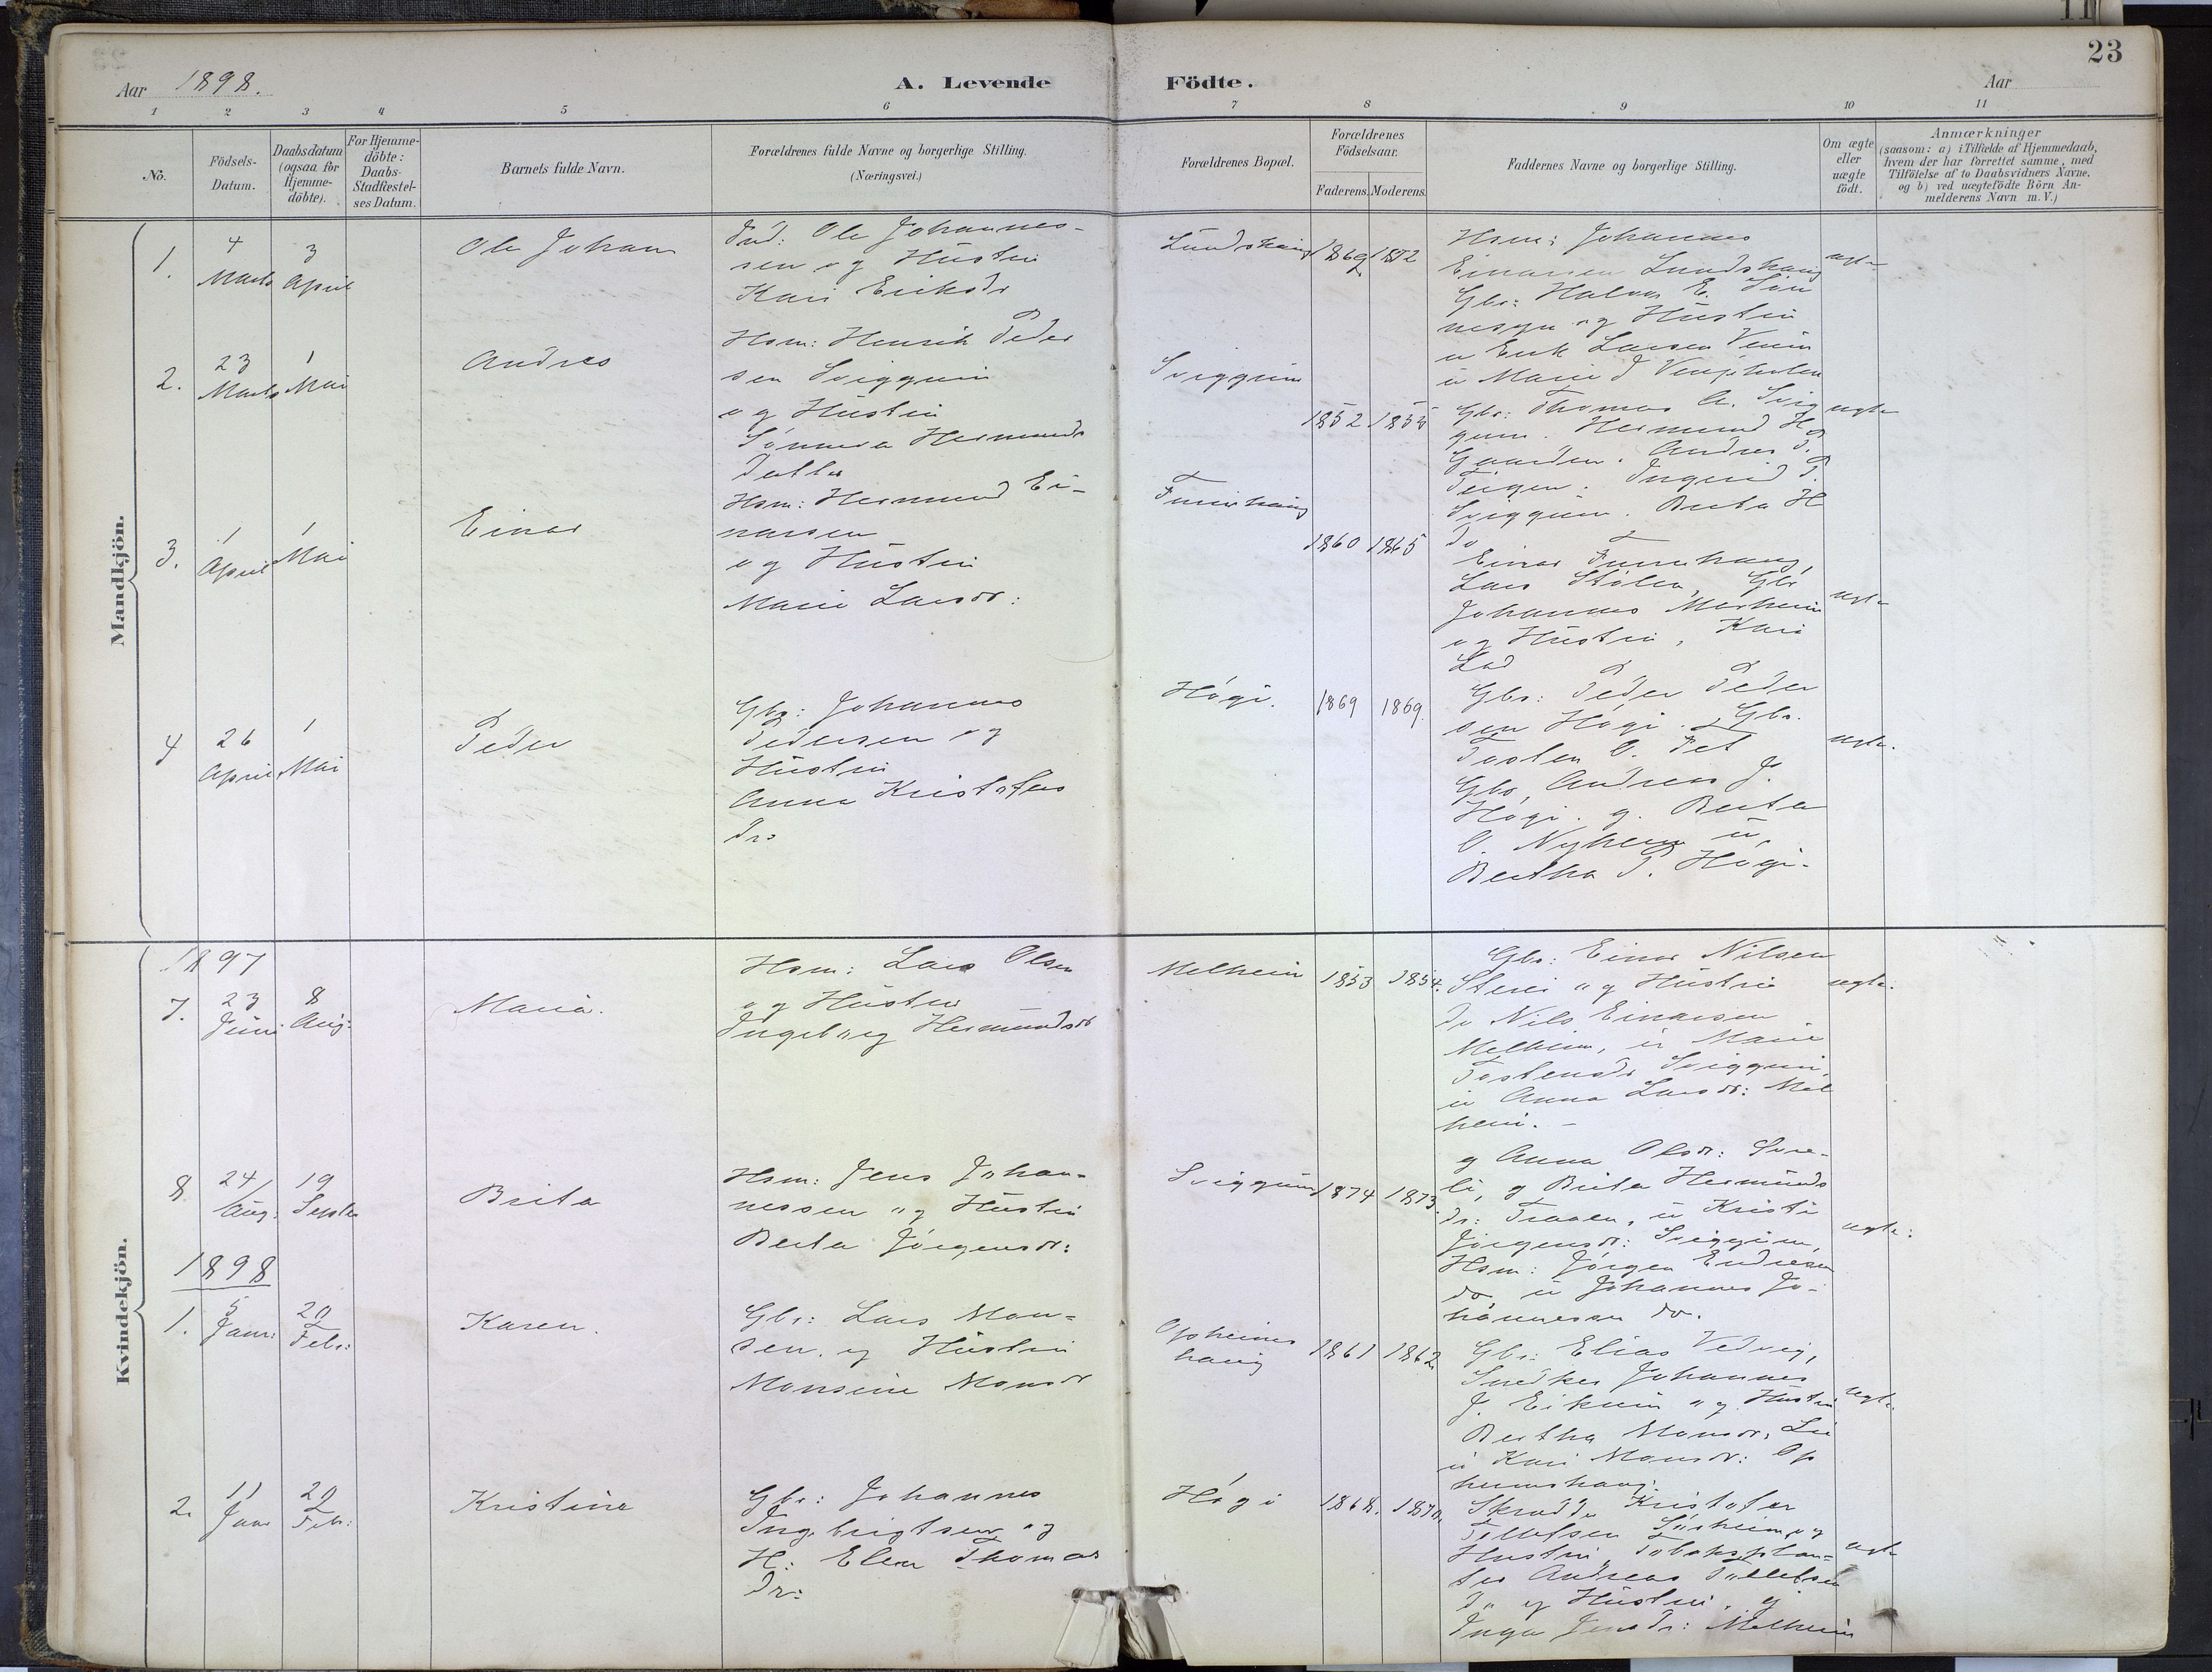 23
Aar 1898.
A. Levende Födte.
Aar
1 2 3 4 5 6 7 8 9 10 11
No.
Födsels-
Datum.
Daabsdatum
(ogsaa for
Hjemme-
döbte).
For Hjemme-
döbte:
Daabs-
Stadfæstel-
ses Datum.
Barnets fulde Navn.
Forældrenes fulde Navne og borgerlige Stilling.
(Næringsvei.)
Forældrenes Bopæl.
Forældrenes
Födselsaar.
Faderens. Moderens.
Faddernes Navne og borgerlige Stilling.
Om ægte
eller
uægte
födt.
Anmærkninger
(saasom: a) i Tilfælde af Hjemmedaab,
hvem der har forrettet samme, med
Tilföielse af to Daabsvidners Navne.
og b) ved uægtefödte Börn An-
melderens Navn m. V.)
Mandkjön.
1.
4
Marts
3
April
Ole Johan
Ind: Ole Johannes-
sen og Hustru
Kari Eriksdr
Lundshaug
1869
1872
Hsm: Johannes
Einarsen Lundshaug
Gbr: Halvor E.
og Hustru
u Erik Larsen
u Marie
ægte
2.
23
Marts
1
Mai
Andres
Hsm: Henrik Peder
sen Sviggum
og Hustru
Synneva Hermunds
Datter
Sviggum
1852
1855
Gbr: Thomas A. Svig
gum. Hermund H
Gaarden. Andres P.
Teigen. Ingerid P.
Sviggum. Berta H
do
ægte
3.
1
April
1
Mai
Einar
Hsm: Hermund Ei-
narsen
og Hustru
Marie Larsdr:
1860
1865
Einar
Lars Stølen, Gbr
Johannes
og Hustru, Kari
ægte
4
26
April
1
Mai
Peder
Gbr: Johannes
Pedersen og
Hustru
Anna Kristofers
Dr:
Høgi.
1869
1869.
Gbr: Peder Peder
sen Høgi. Gbr.
Tosten O. Fet
Gbr, Andreas J.
Høgi. g. Berta
O. Nyheim u,
Bertha P. Høgi.
ægte.
Kvindekjön.
1897
7.
23
Juni
8
Aug:
Maria.
Hsm: Lars Olsen
og Hustru
Ingeborg Hermundsdr
Melheim
1853
1854.
Gbr: Einar Nilsen
og Hustru
do Nils Einarsen
Melheim, u Marie
Tostensdr Sviggum,
u Anna Larsdr: Mel
heim. -
ægte.
8
24
Aug.
19
Septbr
Brita
Hsm: Jens Johan-
nessen og Hustru
Berta Jørgensdr:
Sviggum
1874
1873.
g Anna Olsdr:
g Brita Hermunds
dr: u Kristi
Jørgensdr: Sviggum,
Hsm: Jørgen Endresen
do u Johannes Jo-
hannessen do.
ægte:
1898
1.
5
Janr:
20
Febr:
Karen.
Gbr: Lars Mon-
sen. og Hustru
Monsine Monsdr
Opheims
haug
1861
1862.
Gbr: Elias Vedvig,
Snedker Johannes
J. Eikum og Hustru
Bertha Monsdr: Lie
u Kari Monsdr: Op
heimshaug.
ægte.
2.
11
Janr
20
Febr:
Kristine
Gbr: Johannes
Ingebrigtsen og
H: Elen Thomas
Dr:
Høgi
1868.
1870.
Kristofer
Tollefsen Sørheim og
Hustru,
Andreas Tollefsen
do og Hustru, g
Inga Jensdr: Melheim
ægte